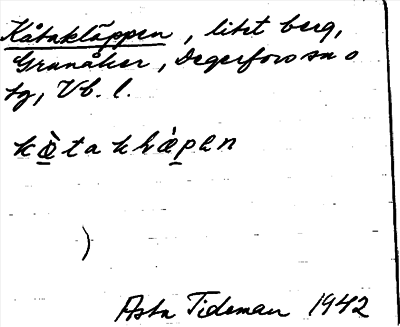 Kåtakläppen, litet berg,
Granåker, Degerfors sn o
tg, Vb. l.
kæ̀takhæ̀pen
)
Asta Tideman 1942